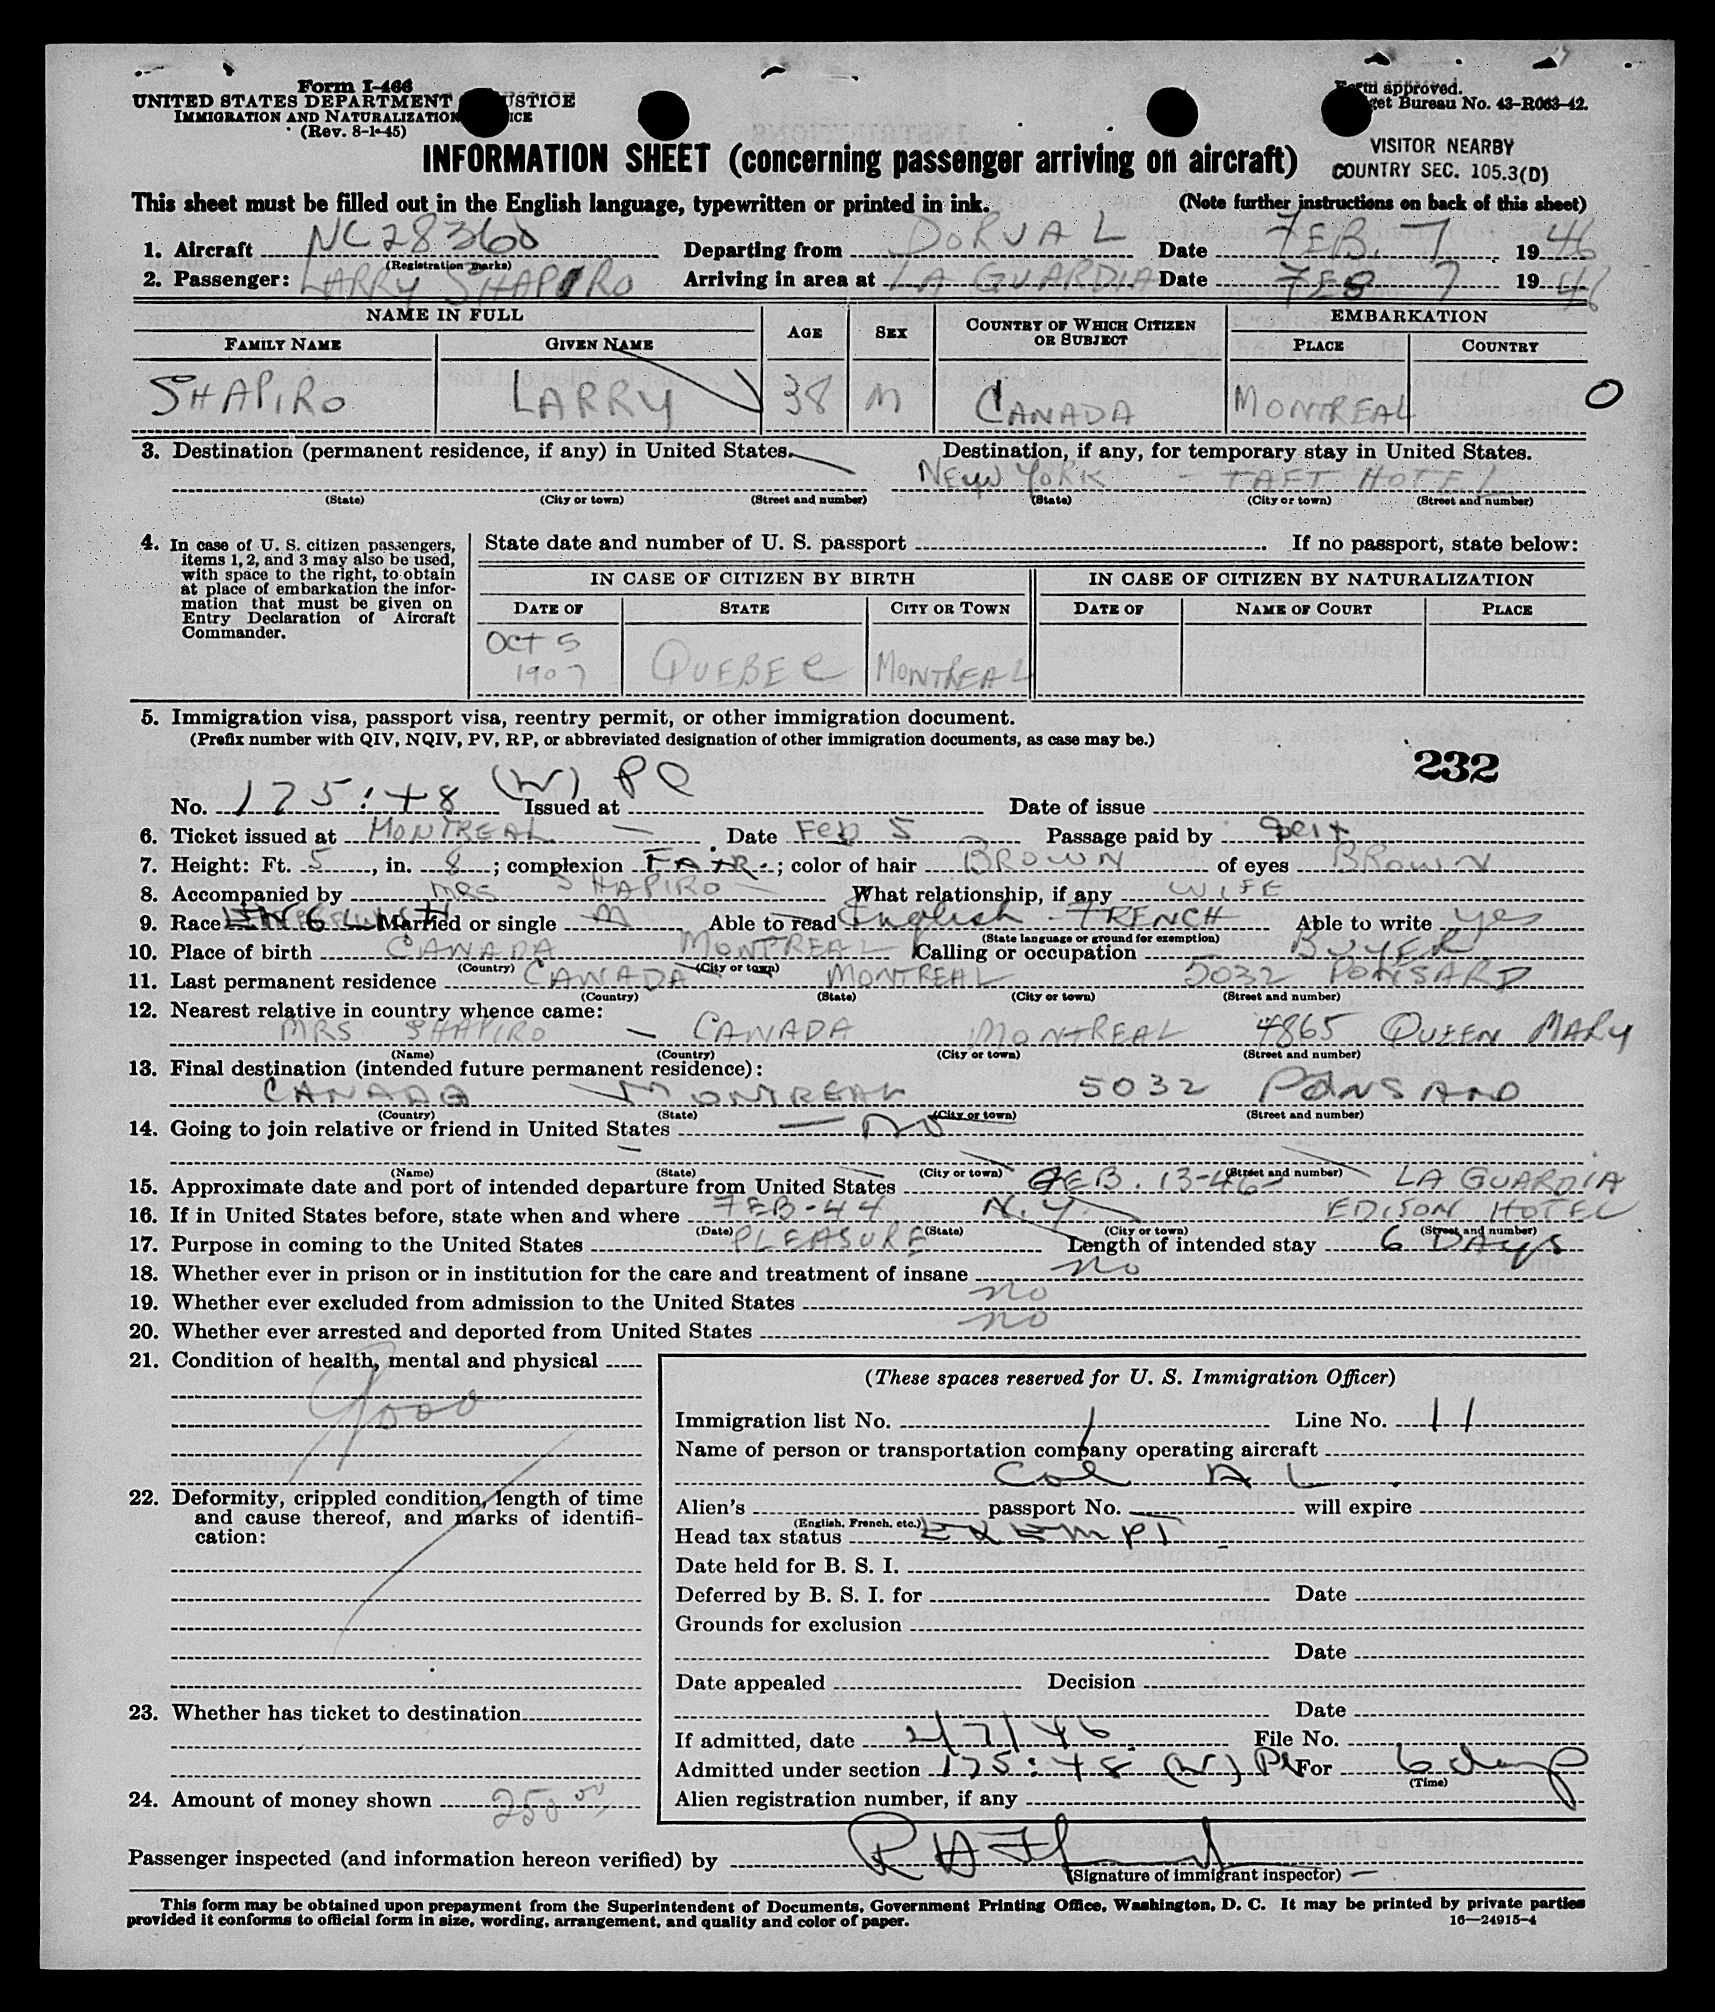 Form I-466
UNITED STATES DEPARTMENT JUSTICE
IMMIGRATION AND NATURALIZATION
(Rev. 8-1-45)
Form approved.
Budget Bureau No. 43-R063-42.
VISITOR NEARBY
COUNTRY SEC. 105.3(D)
INFORMATION SHEET (concerning passenger arriving on aircraft)
This sheet must be filled out in the English language, typewritten or printed in ink. (Note further instructions on back of this sheet)
1. Aircraft NC28360 Departing from DORVAL Date FEB. 7 1946
(Registration marks)
2. Passenger: LARRY SHAPIRO Arriving in area at LA GUARDIA Date FEB 7 1946
NAME IN FULL AGE SEX COUNTRY OF WHICH CITIZEN OR SUBJECT EMBARKATION
FAMILY NAME GIVEN NAME PLACE COUNTRY
SHAPIRO LARRY 38 M CANADA MONTREAL O
3. Destination (permanent residence, if any) in United States. Destination, if any, for temporary stay in United States.
NEW YORK - TAFT HOTEL
(State) (City or town) (Street and number) (State) (City or town) (Street and number)
4. In case of U. S. citizen passengers,
items 1, 2, and 3 may also be used,
with space to the right, to obtain
at place of embarkation the infor-
mation that must be given on
Entry Declaration of Aircraft
Commander.
State date and number of U. S. passport If no passport, state below:
IN CASE OF CITIZEN BY BIRTH IN CASE OF CITIZEN BY NATURALIZATION
DATE OF STATE CITY OR TOWN DATE OF NAME OF COURT PLACE
OCT 5
1907 QUEBEC MONTREAL
5. Immigration visa, passport visa, reentry permit, or other immigration document.
(Prefix number with QIV, NQIV, PV, RP, or abbreviated designation of other immigration documents, as case may be.)
232
No. 175:48 (W) PL Issued at Date of issue
6. Ticket issued at MONTREAL Date Feb 5 Passage paid by Self
7. Height: Ft. 5, in. 8; complexion FAIR; color of hair BROWN of eyes BROWN
8. Accompanied by MRS SHAPIRO What relationship, if any WIFE
9. Race ENGLISH Married or single M Able to read English - FRENCH Able to write yes
(State language or ground for exemption)
10. Place of birth CANADA MONTREAL Calling or occupation BUYER
(Country) (City or town)
11. Last permanent residence CANADA MONTREAL 5032 PONSARD
(Country) (State) (City or town) (Street and number)
12. Nearest relative in country whence came:
MRS SHAPIRO - CANADA MONTREAL 4865 QUEEN MARY
(Name) (Country) (City or town) (Street and number)
13. Final destination (intended future permanent residence):
CANADA MONTREAL 5032 PONSARD
(Country) (State) (City or town) (Street and number)
14. Going to join relative or friend in United States — NO
(Name) (State) (City or town) (Street and number)
15. Approximate date and port of intended departure from United States FEB. 13-46 - LA GUARDIA
16. If in United States before, state when and where FEB-44 N.Y. EDISON HOTEL
(Date) (State) (City or town) (Street and number)
17. Purpose in coming to the United States PLEASURE Length of intended stay 6 DAYS
18. Whether ever in prison or in institution for the care and treatment of insane no
19. Whether ever excluded from admission to the United States no
20. Whether ever arrested and deported from United States no
21. Condition of health, mental and physical
Good
22. Deformity, crippled condition, length of time
and cause thereof, and marks of identifi-
cation:
23. Whether has ticket to destination
24. Amount of money shown 250.00
(These spaces reserved for U. S. Immigration Officer)
Immigration list No. 1 Line No. 11
Name of person or transportation company operating aircraft
Col A L
Alien's passport No. will expire
(English, French, etc.)
Head tax status EXEMPT
Date held for B. S. I.
Deferred by B. S. I. for Date
Grounds for exclusion
Date
Date appealed Decision
Date
If admitted, date 2/7/46 File No.
Admitted under section 175:48 (W) PL For 6 days
(Time)
Alien registration number, if any
Passenger inspected (and information hereon verified) by
(Signature of immigrant inspector)
This form may be obtained upon prepayment from the Superintendent of Documents, Government Printing Office, Washington, D. C. It may be printed by private parties
provided it conforms to official form in size, wording, arrangement, and quality and color of paper. 16—24915-4